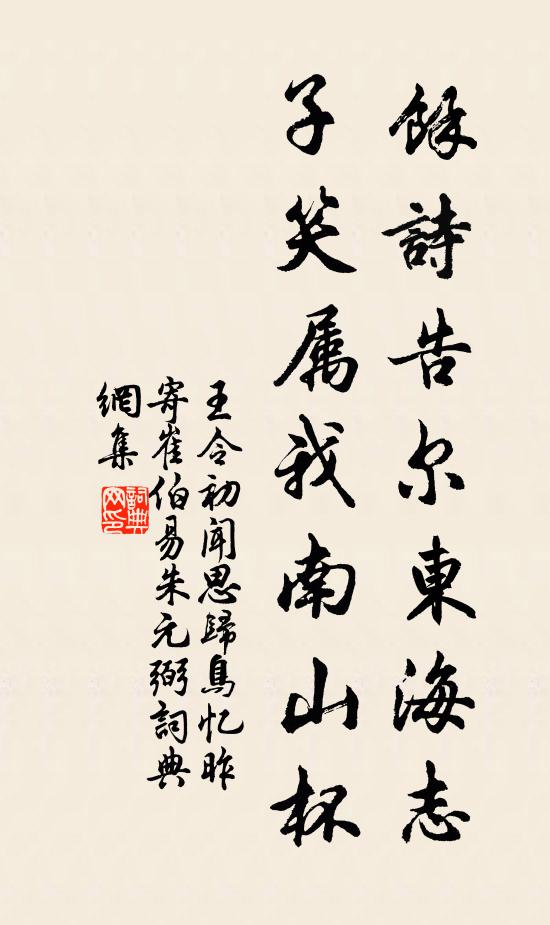 餘詩告尔東海志
子笑属我南山杯
王令初闻思歸鳥忆昨
寄崔伯易朱元弼詞典
網集
詞典网印